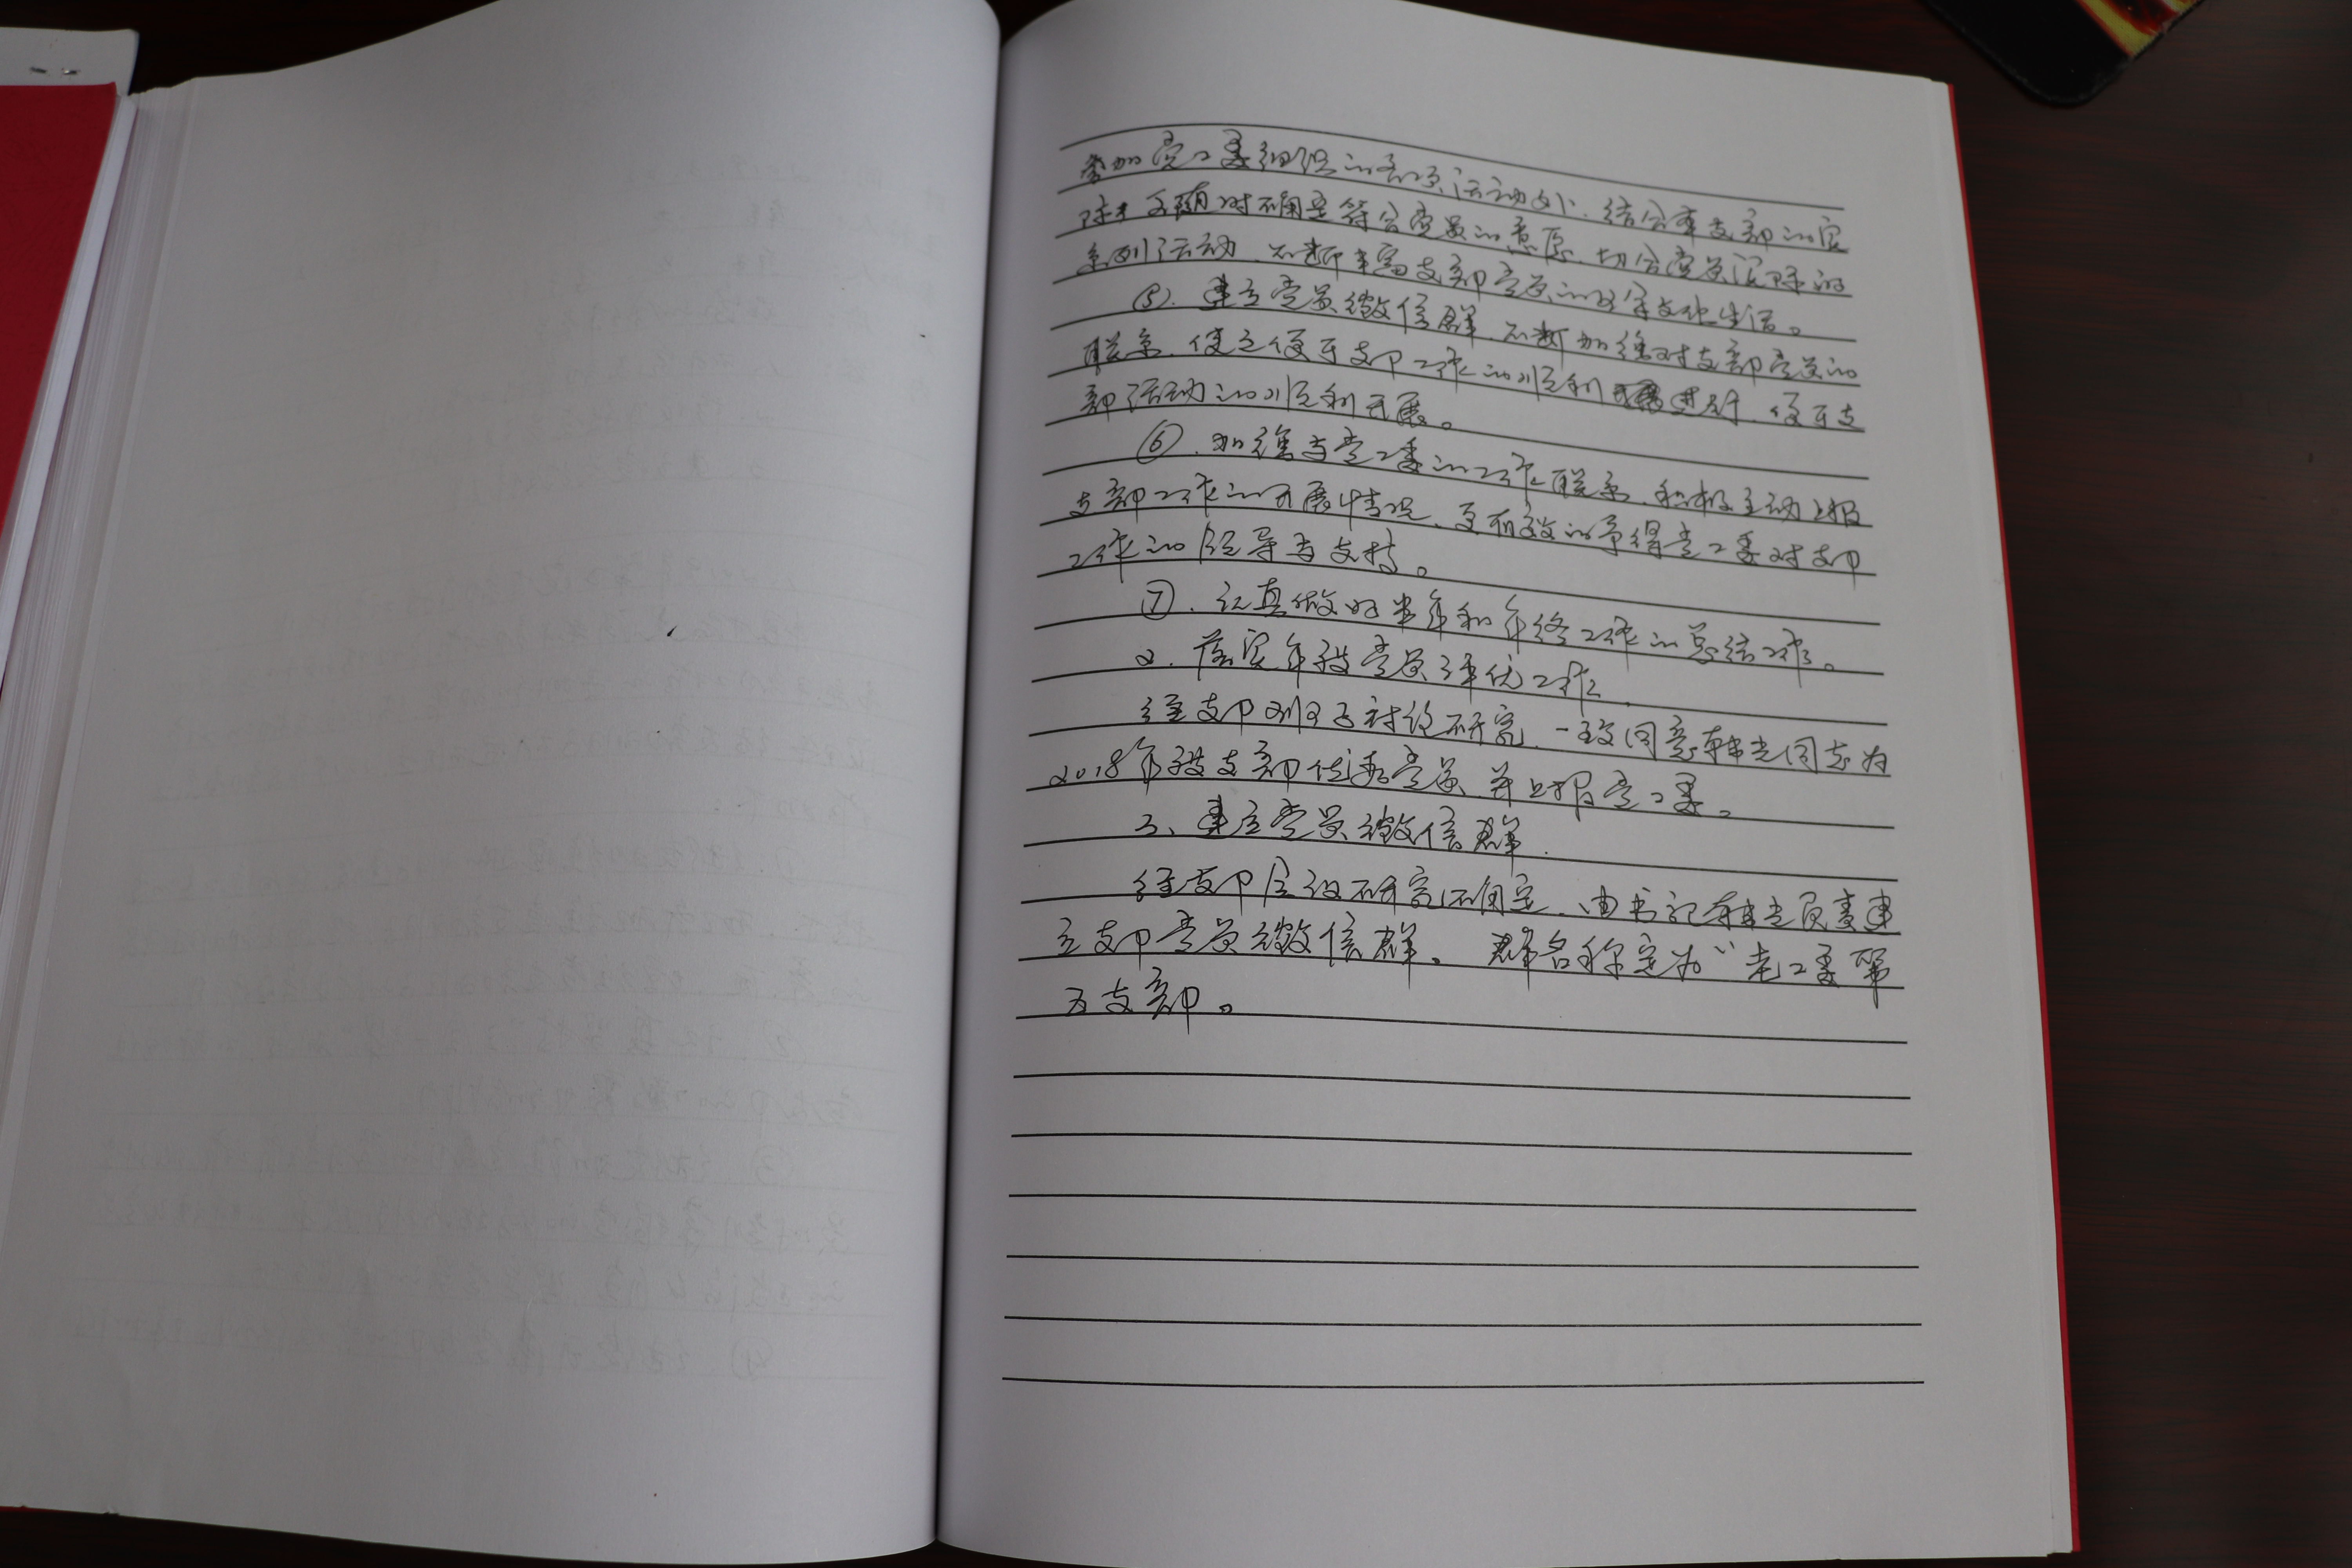 参加党工委组织的各项活动外、结合本支部的实
际 随时确定符合党员的意愿、切合党员实际的
系列活动、不断丰富支部党员的 文化生活。
(5). 建立党员微信群、不断加强对支部党员的
联系、使之便于支部工作的顺利进行、便于支
部活动的顺利开展。
⑥. 加强与党工委的工作联系、积极主动上报
支部工作的开展情况、更有效的争得党工委对支部
工作的领导与支持。
⑦. 认真做好半年和年终工作的总结工作。
2. 落实年段党员评优工作.
经支部 讨论研究、一致同意韩光同志为
2018年段支部优秀党员 并上报党工委。
3、建立党员微信群.
经支部会议研究确定、由书记韩光负责建
立支部党员微信群。 群名称定为“老工委第
五支部。